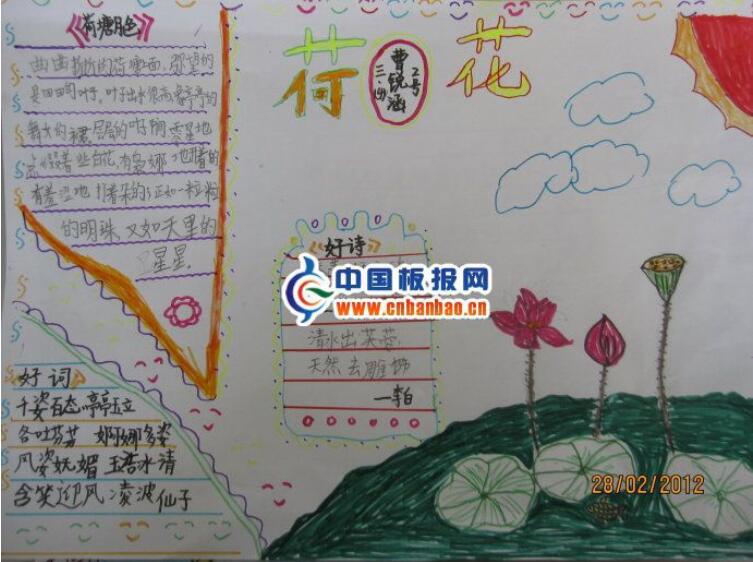 《荷塘月色》
曲曲折折的荷塘面,弥望的
是田田的叶子。叶子出水很高,像亭亭的
舞女的裙。层层的叶间,零星地
点缀着些白花,有袅娜地开着的
有羞涩地打着朵的;正如一粒粒
的明珠,又如天里的
星星,
荷花
三、(4)
曹锐涵
2号
《好诗》
中国板报网
www.cnbanbao.cn
清水出芙蓉,
天然去雕饰
—李白
好词
千姿百态 亭亭玉立
各吐芬芳 婀娜多姿
风姿妩媚 玉洁冰清
含笑迎风 凌波仙子
28/02/2012